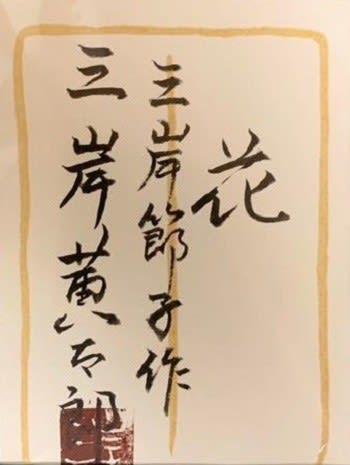 花
三岸節子作
三岸黄太郎